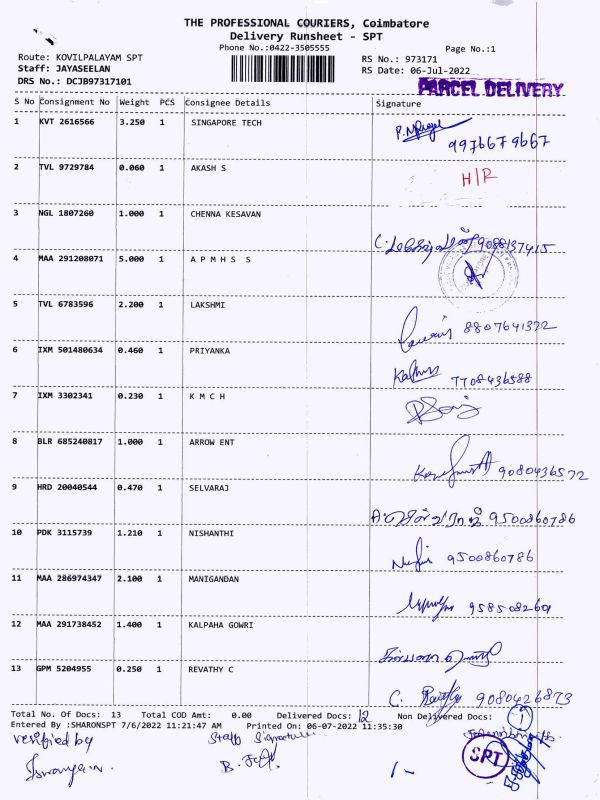 THE PROFESSIONAL COURIERS, Coimbatore
Delivery Runsheet - SPT
Phone No.:0422-3505555 Page No.:1
Route: KOVILPALAYAM SPT RS No.: 973171
Staff: JAYASEELAN RS Date: 06-Jul-2022
DRS No.: DCJB97317101 PARCEL DELIVERY
S No Consignment No Weight PCS Consignee Details Signature
1 KVT 2616566 3.250 1 SINGAPORE TECH
9976679667
2 TVL 9729784 0.060 1 AKASH S H/R
3 NGL 1807260 1.000 1 CHENNA KESAVAN
9088137415
4 MAA 291208071 5.000 1 A P M H S S
5 TVL 6783596 2.200 1 LAKSHMI
8807641372
6 IXM 501480634 0.460 1 PRIYANKA
7708436588
7 IXM 3302341 0.230 1 K M C H
8 BLR 685240817 1.000 1 ARROW ENT
9080436572
9 HRD 20040544 0.470 1 SELVARAJ
9500860786
10 PDK 3115739 1.210 1 NISHANTHI
9500860786
11 MAA 286974347 2.100 1 MANIGANDAN
9585082601
12 MAA 291738452 1.400 1 KALPAHA GOWRI
13 GPM 5204955 0.250 1 REVATHY C
C. Revathy 9080426873
Total No. Of Docs: 13 Total COD Amt: 0.00 Delivered Docs: 12 Non Delivered Docs: 1
Entered By :SHARONSPT 7/6/2022 11:21:47 AM Printed On: 06-07-2022 11:35:30
verified by Staff Signature
SPT